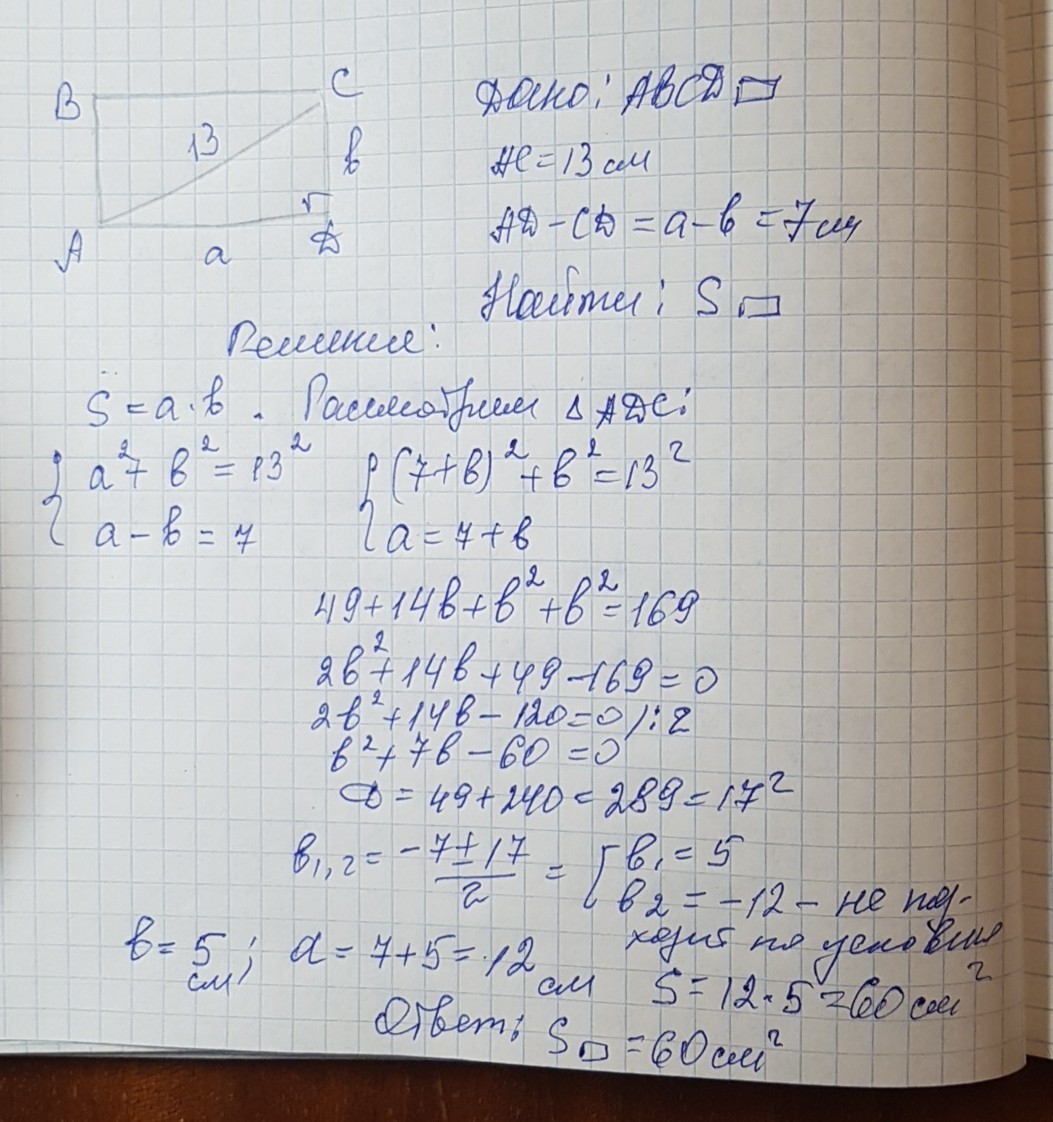 B
C
13
в
A
a
D
Дано: ABCD ▭
AC = 13 см
AD - CD = a - в = 7 см
Найти: S ▭
Решение:
S = a · в . Рассмотрим Δ ADC:
{ a² + в² = 13²   { (7 + в)² + в² = 13²
{ a - в = 7   { a = 7 + в
49 + 14в + в² + в² = 169
2в² + 14в + 49 - 169 = 0
2в² + 14в - 120 = 0 /: 2
в² + 7в - 60 = 0
D = 49 + 240 = 289 = 17²
в₁,₂ = (-7 ± 17)/2 = [ в₁ = 5
в₂ = -12 - не под-
ходит по условию
в = 5 см; a = 7 + 5 = 12 см
S = 12 · 5 = 60 см²
Ответ: S▭ = 60 см²